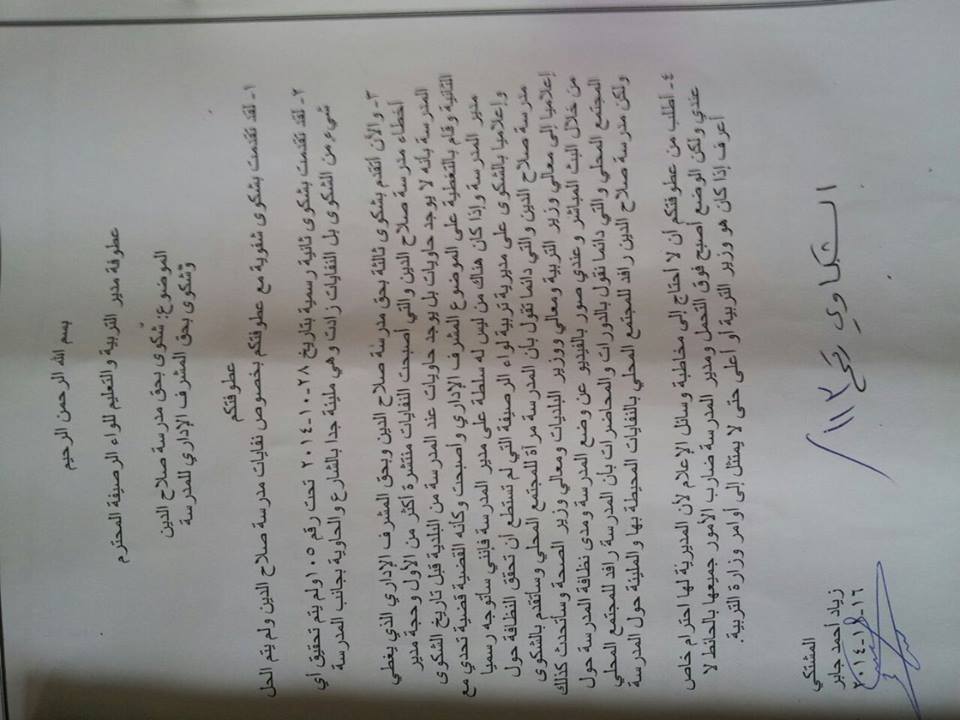 بسم الله الرحمن الرحيم
عطوفة مدير التربية والتعليم للواء الرصيفة المحترم
الموضوع: شكوى بحق مدرسة صلاح الدين
وشكوى بحق المشرف الإداري للمدرسة
عطوفتكم
١- لقد تقدمت بشكوى شفوية مع عطوفتكم بخصوص نفايات مدرسة صلاح الدين ولم يتم الحل
٢- لقد تقدمت بشكوى ثانية رسمية بتاريخ ٢٨-١٠-٢٠١٤ تحت رقم ١٠٥ ولم يتم تحقيق أي
شيء من الشكوى بل النفايات زادت وهي مليئة جدا بالشارع والحاوية بجانب المدرسة
٣- والأن أتقدم بشكوى ثالثة بحق مدرسة صلاح الدين وبحق المشرف الإداري الذي يغطي
أخطاء مدرسة صلاح الدين والتي أصبحت النفايات منتشرة أكثر من الأول وحجة مدير
المدرسة بأنه لا يوجد حاويات بل يوجد حاويات عند المدرسة من البلدية قبل تاريخ الشكوى
الثانية وقام بالتغطية على الموضوع المشرف الإداري وأصبحت وكأنه القضية قضية تحدي مع
مدير المدرسة وإذا كان هناك من ليس له سلطة على مدير المدرسة فإنني سأتوجه رسميا
وإعلاميا بالشكوى على مديرية تربية لواء الرصيفة التي لم تستطع أن تحقق النظافة حول
مدرسة صلاح الدين والتي دائما تقول بأن المدرسة مرأة للمجتمع المحلي وسأتقدم بالشكوى
إعلاميا إلى معالي وزير التربية ومعالي ووزير البلديات ومعالي وزير الصحة وسأتحدث كذلك
من خلال البث المباشر وعندي صور بالفيديو عن وضع المدرسة ومدى نظافة المدرسة حول
المجتمع المحلي والتي دائما تقول بالدورات والمحاضرات بأن المدرسة رافد للمجتمع المحلي
ولكن مدرسة صلاح الدين رافد للمجتمع المحلي بالنفايات المحيطة بها والمليئة حول المدرسة
٤- أطلب من عطوفتكم أن لا أحتاج إلى مخاطبة وسائل الإعلام لأن المديرية لها احترام خاص
عندي ولكن الوضع أصبح فوق التحمل ومدير المدرسة ضارب الأمور جميعها بالحائط لا
أعرف إذا كان هو وزير التربية أو أعلى حتى لا يمتثل إلى أوامر وزارة التربية.
المشتكي
زياد أحمد جابر
الشكاوي
١١٣